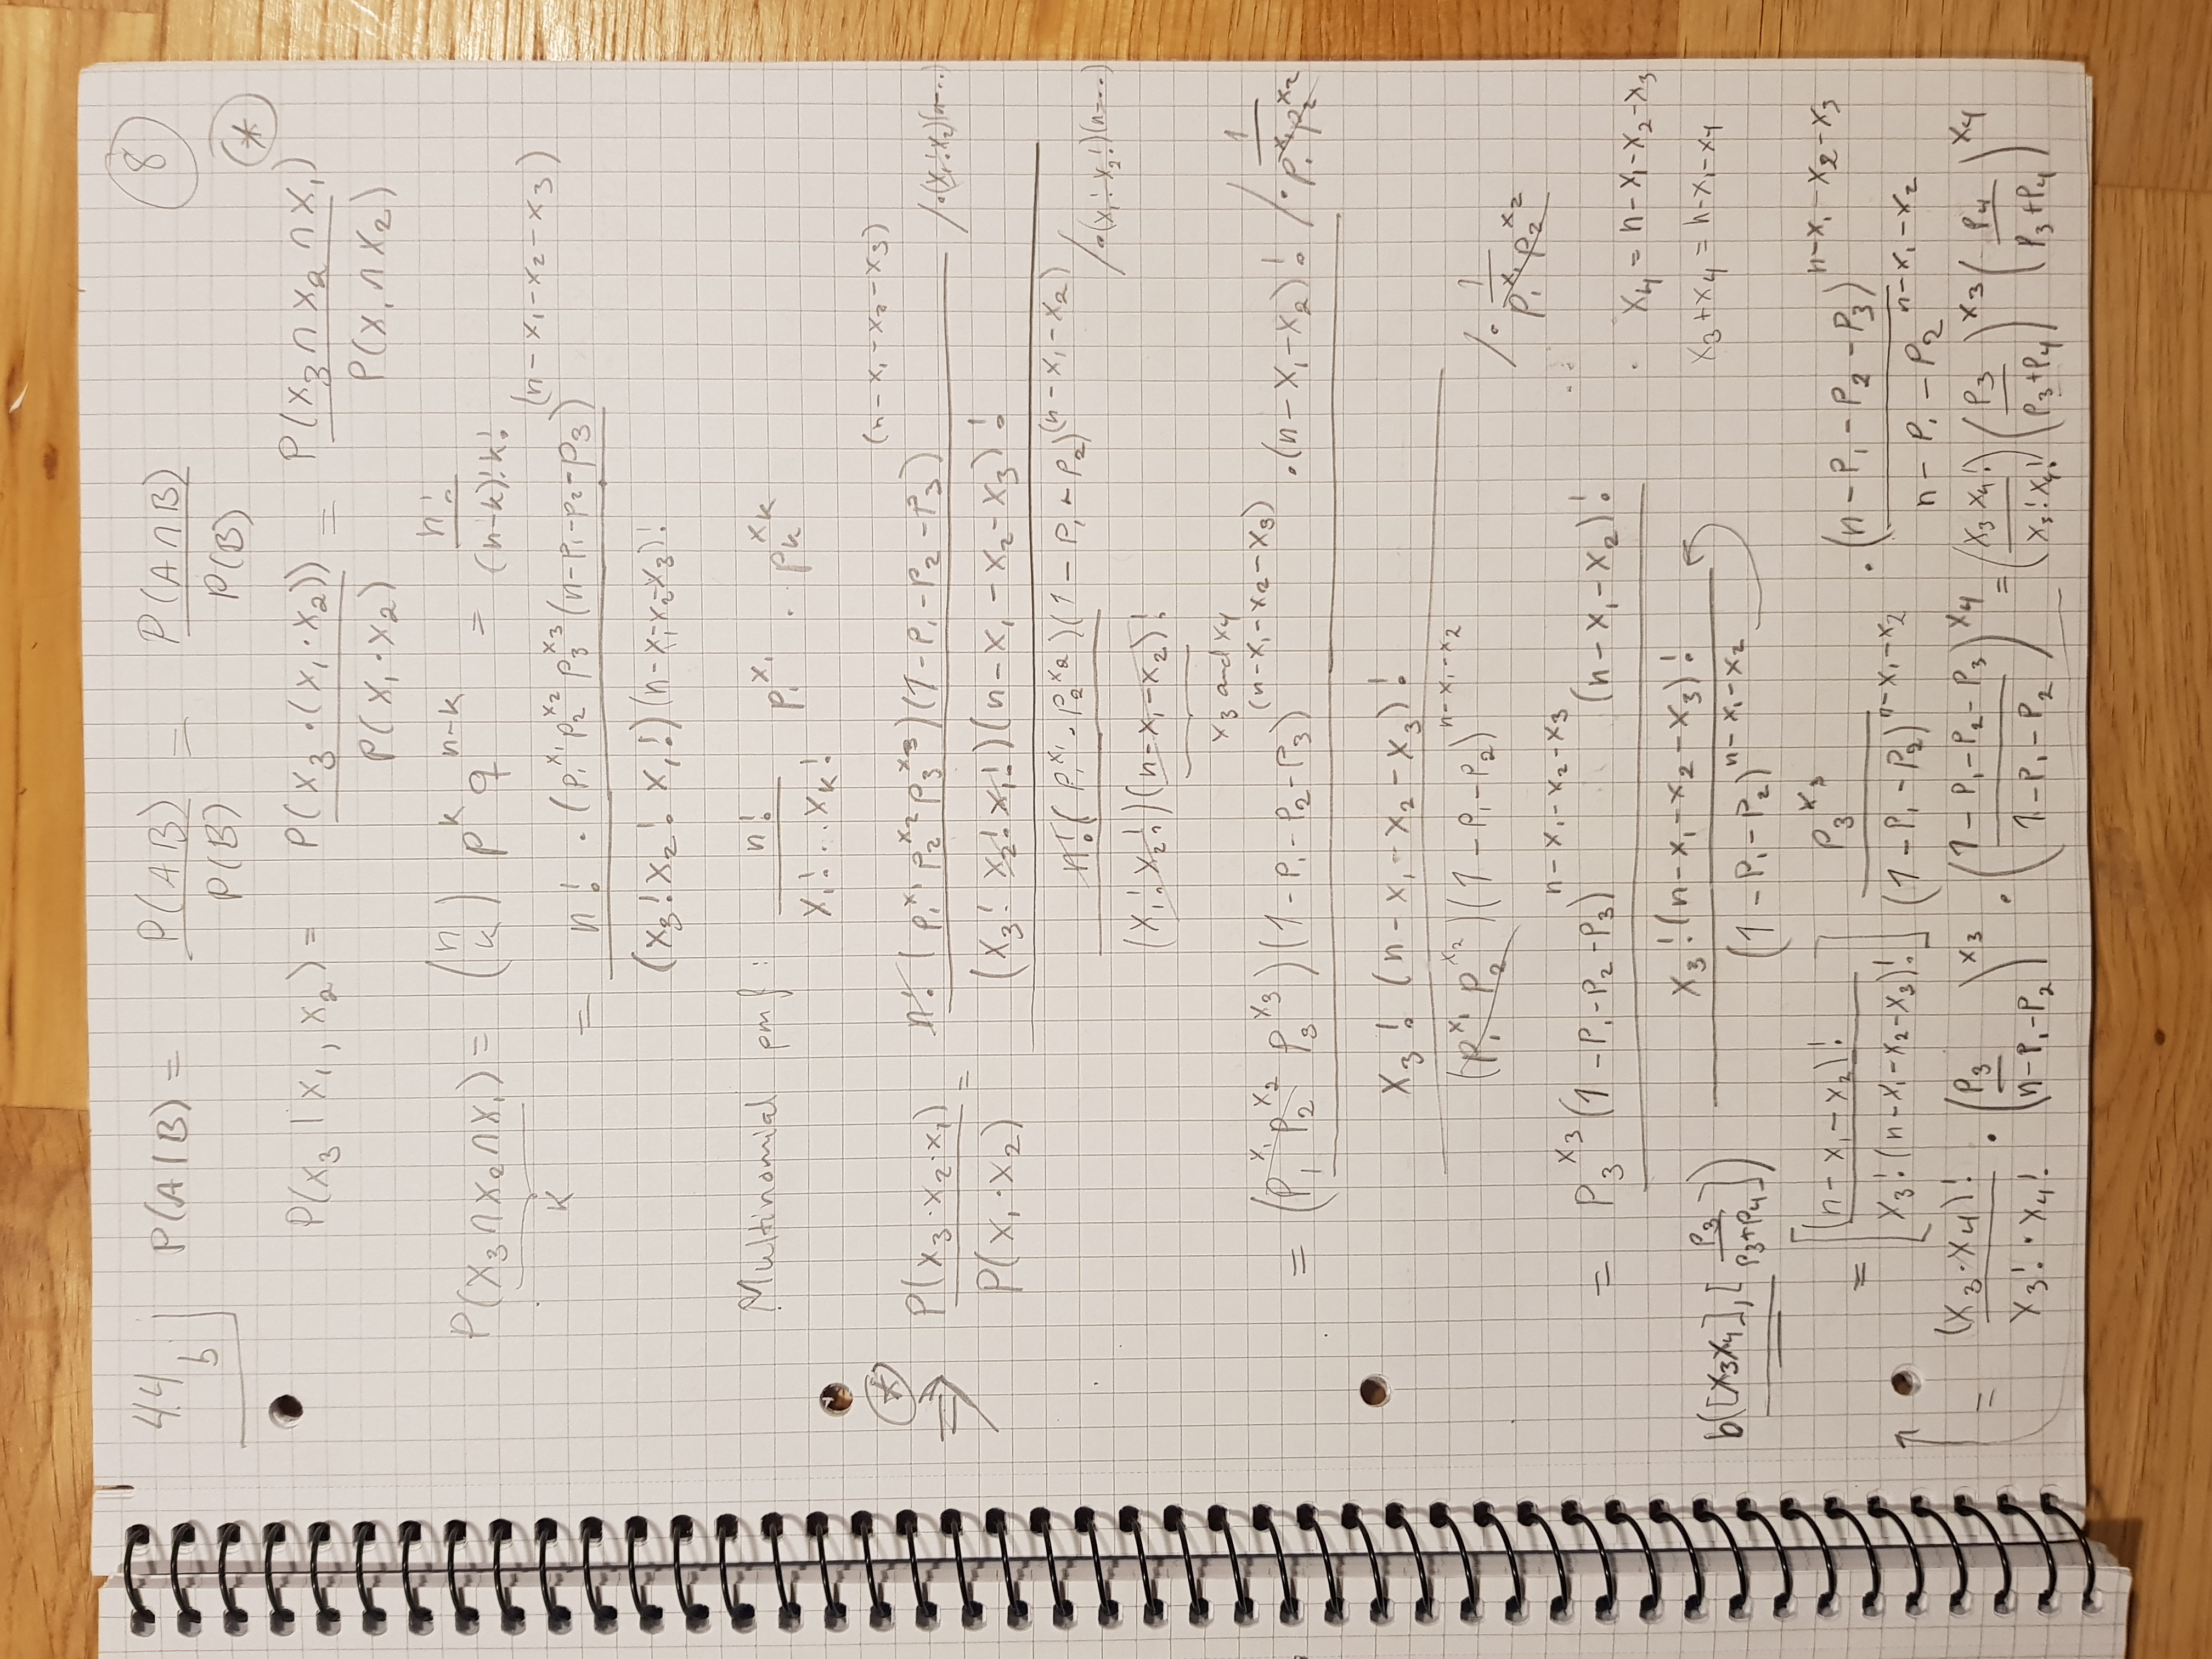 4.4 b P(A|B) = P(AB) / P(B) = P(A∩B) / P(B) 8
*
P(x₃ | x₁, x₂) = P(x₃·(x₁·x₂)) / P(x₁·x₂) = P(x₃∩x₂∩x₁) / P(x₁∩x₂)
P(x₃∩x₂∩x₁) = (n k) p^k q^(n-k) = n! / (n-k)!k!
k
= n! · (p₁^x₁ p₂^x₂ p₃^x₃ (n-p₁-p₂-p₃)^(n-x₁-x₂-x₃) / (x₃! x₂! x₁!)(n-x₁-x₂-x₃)!
Multinomial pmf: n! / x₁!...x_k! p₁^x₁ .. p_k^x_k
*
⇒ P(x₃·x₂·x₁) / P(x₁·x₂) = n! (p₁^x₁ p₂^x₂ p₃^x₃)(1-p₁-p₂-p₃)^(n-x₁-x₂-x₃) /·(x₁!x₂)(n-..)
(x₃! x₂! x₁!)(n-x₁-x₂-x₃)!
n!(p₁^x₁·p₂^x₂)(1-p₁-p₂)^(n-x₁-x₂) /·(x₁!x₂!)(n-..)
(x₁!x₂!)(n-x₁-x₂)!
x₃ and x₄
= (p₁^x₁ p₂^x₂ p₃^x₃)(1-p₁-p₂-p₃)^(n-x₁-x₂-x₃) ·(n-x₁-x₂)! /· 1 / p₁^x₁ p₂^x₂
x₃! (n-x₁-x₂-x₃)!
(p₁^x₁ p₂^x₂)(1-p₁-p₂)^n-x₁-x₂ /· 1 / p₁^x₁ p₂^x₂
= p₃^x₃ (1-p₁-p₂-p₃)^n-x₁-x₂-x₃ (n-x₁-x₂)!
x₄ = n-x₁-x₂-x₃
x₃!(n-x₁-x₂-x₃)!
x₃+x₄ = n-x₁-x₄
b([x₃x₄],[p₃ / p₃+p₄]) (1-p₁-p₂)^n-x₁-x₂
= [(n-x₁-x₂)! / x₃!(n-x₁-x₂-x₃)!] p₃^x₃ / (1-p₁-p₂)^n-x₁-x₂ · (n-p₁-p₂-p₃)^n-x₁-x₂-x₃ / n-p₁-p₂^n-x₁-x₂
= (x₃·x₄)! / x₃!·x₄! · (p₃ / n-p₁-p₂)^x₃ · (1-p₁-p₂-p₃ / 1-p₁-p₂)^x₄ = (x₃x₄! / x₃!x₄!) (p₃ / p₃+p₄)^x₃ (p₄ / p₃+p₄)^x₄